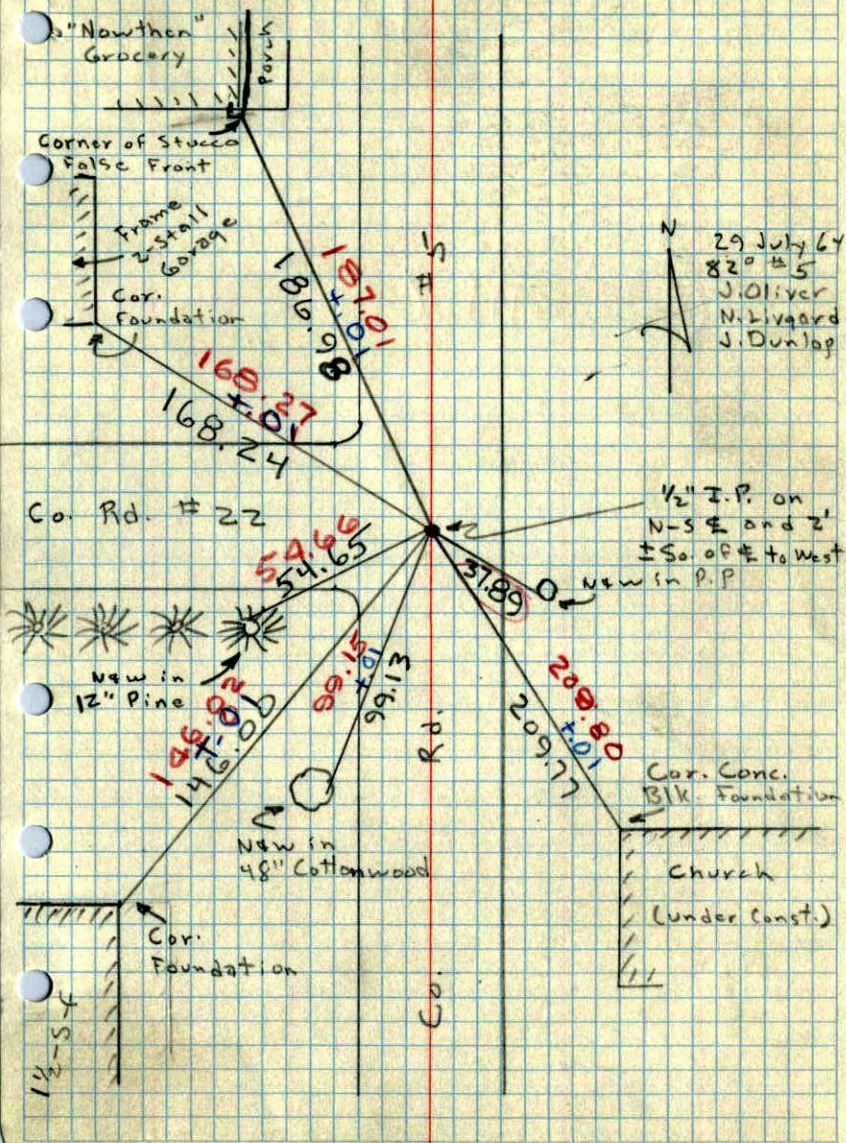 "Nowthen"
Grocery
Porch
Corner of Stucco
False Front
Frame
2-Stall
Garage
Cor.
Foundation
187.01
+.01
186.98
# 5
N
29 July 64
82° #5
J. Oliver
N. Livgard
J. Dunlop
168.27
+.01
168.24
Co. Rd. # 22
1/2" I.P. on
N-S ℄ and 2'
± So. of ℄ to West
54.66
54.65
37.89
N&W in P.P
N&W in
12" Pine
146.02
+.01
146.00
99.15
+.01
99.13
208.80
+.01
209.77
Rd.
Cor. Conc.
Blk. Foundation
N&W in
48" Cottonwood
Church
(under Const.)
Cor.
Foundation
Co.
1 1/2-S-